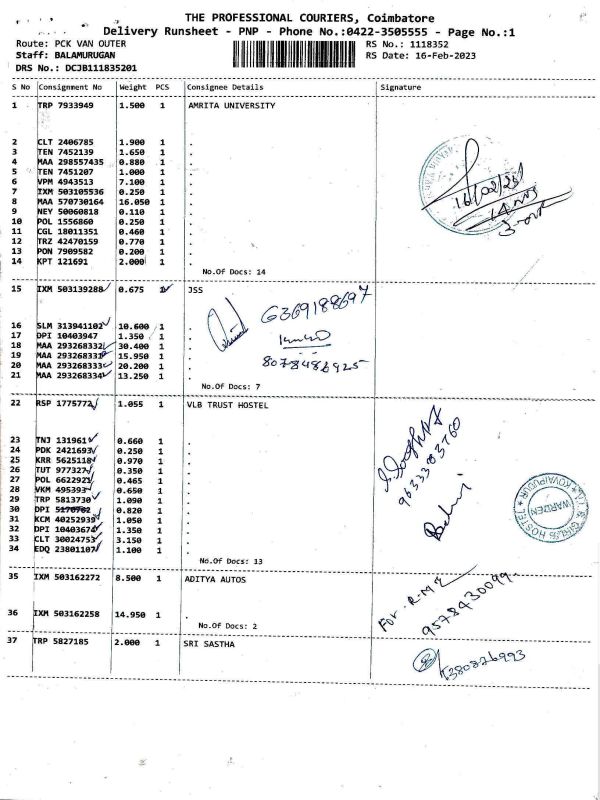 THE PROFESSIONAL COURIERS, Coimbatore
Delivery Runsheet - PNP - Phone No.:0422-3505555 - Page No.:1
Route: PCK VAN OUTER RS No.: 1118352
Staff: BALAMURUGAN RS Date: 16-Feb-2023
DRS No.: DCJB111835201
S No Consignment No Weight PCS Consignee Details Signature
1 TRP 7933949 1.500 1 AMRITA UNIVERSITY
2 CLT 2406785 1.900 1 .
3 TEN 7452139 1.650 1 .
4 MAA 298557435 0.880 1 .
5 TEN 7451207 1.000 1 .
6 VPM 4943513 7.100 1 .
7 IXM 503105536 0.250 1 .
8 MAA 570730164 16.050 1 .
9 NEY 50060818 0.110 1 .
10 POL 1556860 0.250 1 .
11 CGL 18011351 0.460 1 .
12 TRZ 42470159 0.770 1 .
13 PON 7909582 0.200 1 .
14 KPT 121691 2.000 1 .
16/02/23
No.Of Docs: 14
15 IXM 503139288 0.675 1 JSS
6369188697
16 SLM 313941102 10.600 1 .
17 DPI 10403947 1.350 1 .
18 MAA 293268332 30.400 1 .
19 MAA 293268331 15.950 1 .
20 MAA 293268333 20.200 1 .
21 MAA 293268334 13.250 1 .
8078486925
No.Of Docs: 7
22 RSP 1775772 1.055 1 VLB TRUST HOSTEL
9633383760
23 TNJ 131961 0.660 1 .
24 PDK 2421693 0.250 1 .
25 KRR 5625118 0.970 1 .
26 TUT 977327 0.350 1 .
27 POL 6622921 0.465 1 .
28 VKM 495393 0.650 1 .
29 TRP 5813730 1.090 1 .
30 DPI 5170762 0.820 1 .
31 KCM 40252939 1.050 1 .
32 DPI 10403674 1.350 1 .
33 CLT 30024753 3.150 1 .
34 EDQ 23801107 1.100 1 .
WARDEN
GIRLS HOSTEL
KOVAIPUDUR
No.Of Docs: 13
35 IXM 503162272 8.500 1 ADITYA AUTOS
For. R.M.E
9578430099
36 IXM 503162258 14.950 1 .
No.Of Docs: 2
37 TRP 5827185 2.000 1 SRI SASTHA